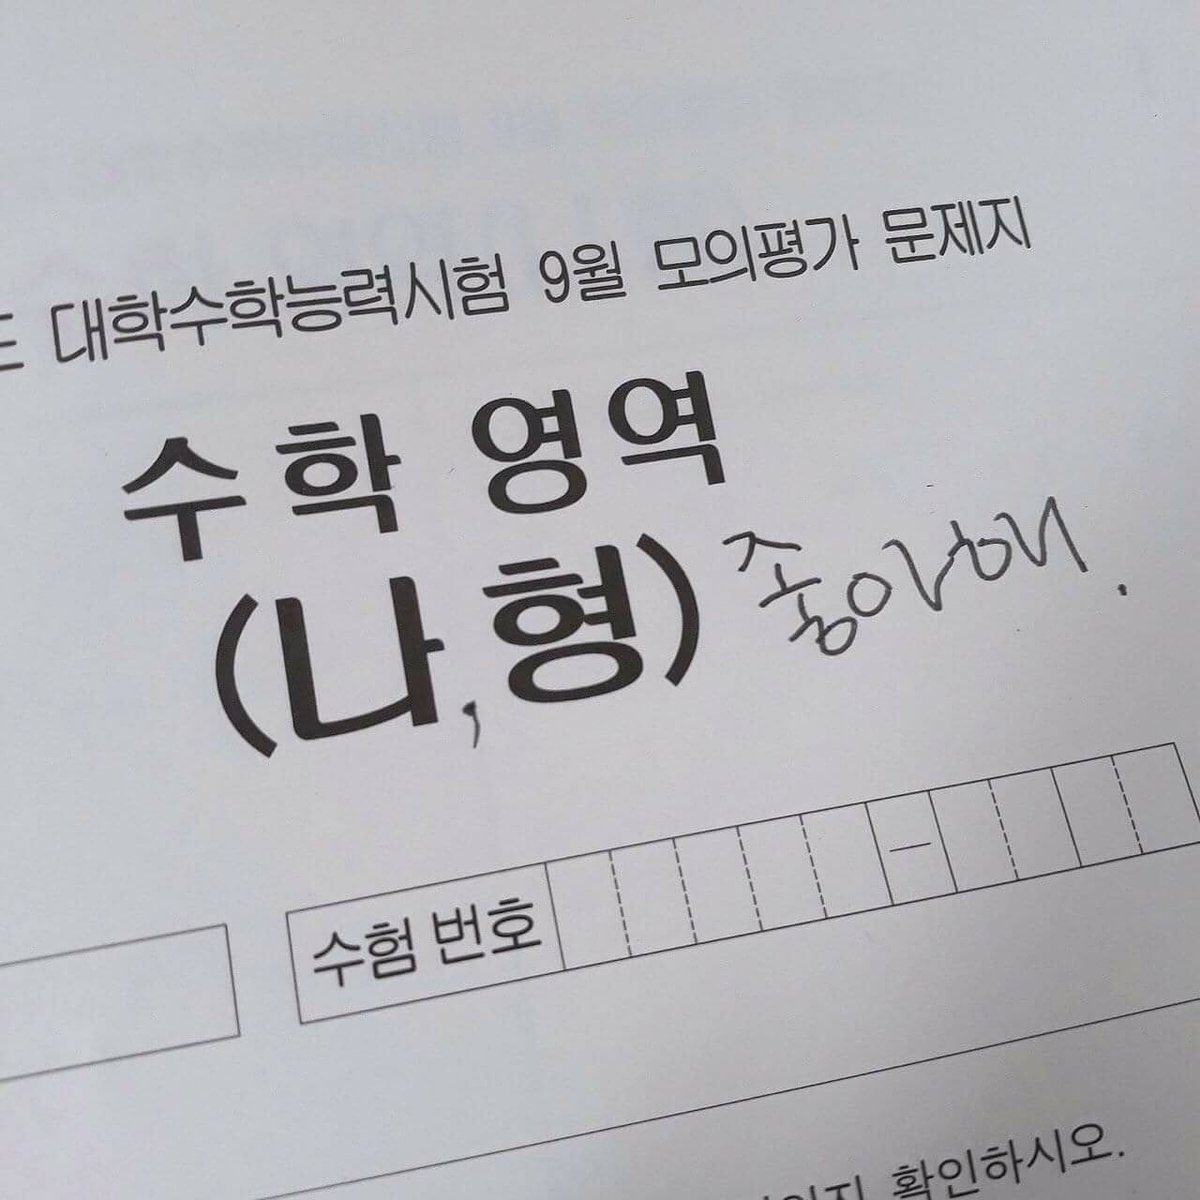 대학수학능력시험 9월 모의평가 문제지
수학 영역
(나,형) 좋아해.
수험 번호 —
확인하시오.